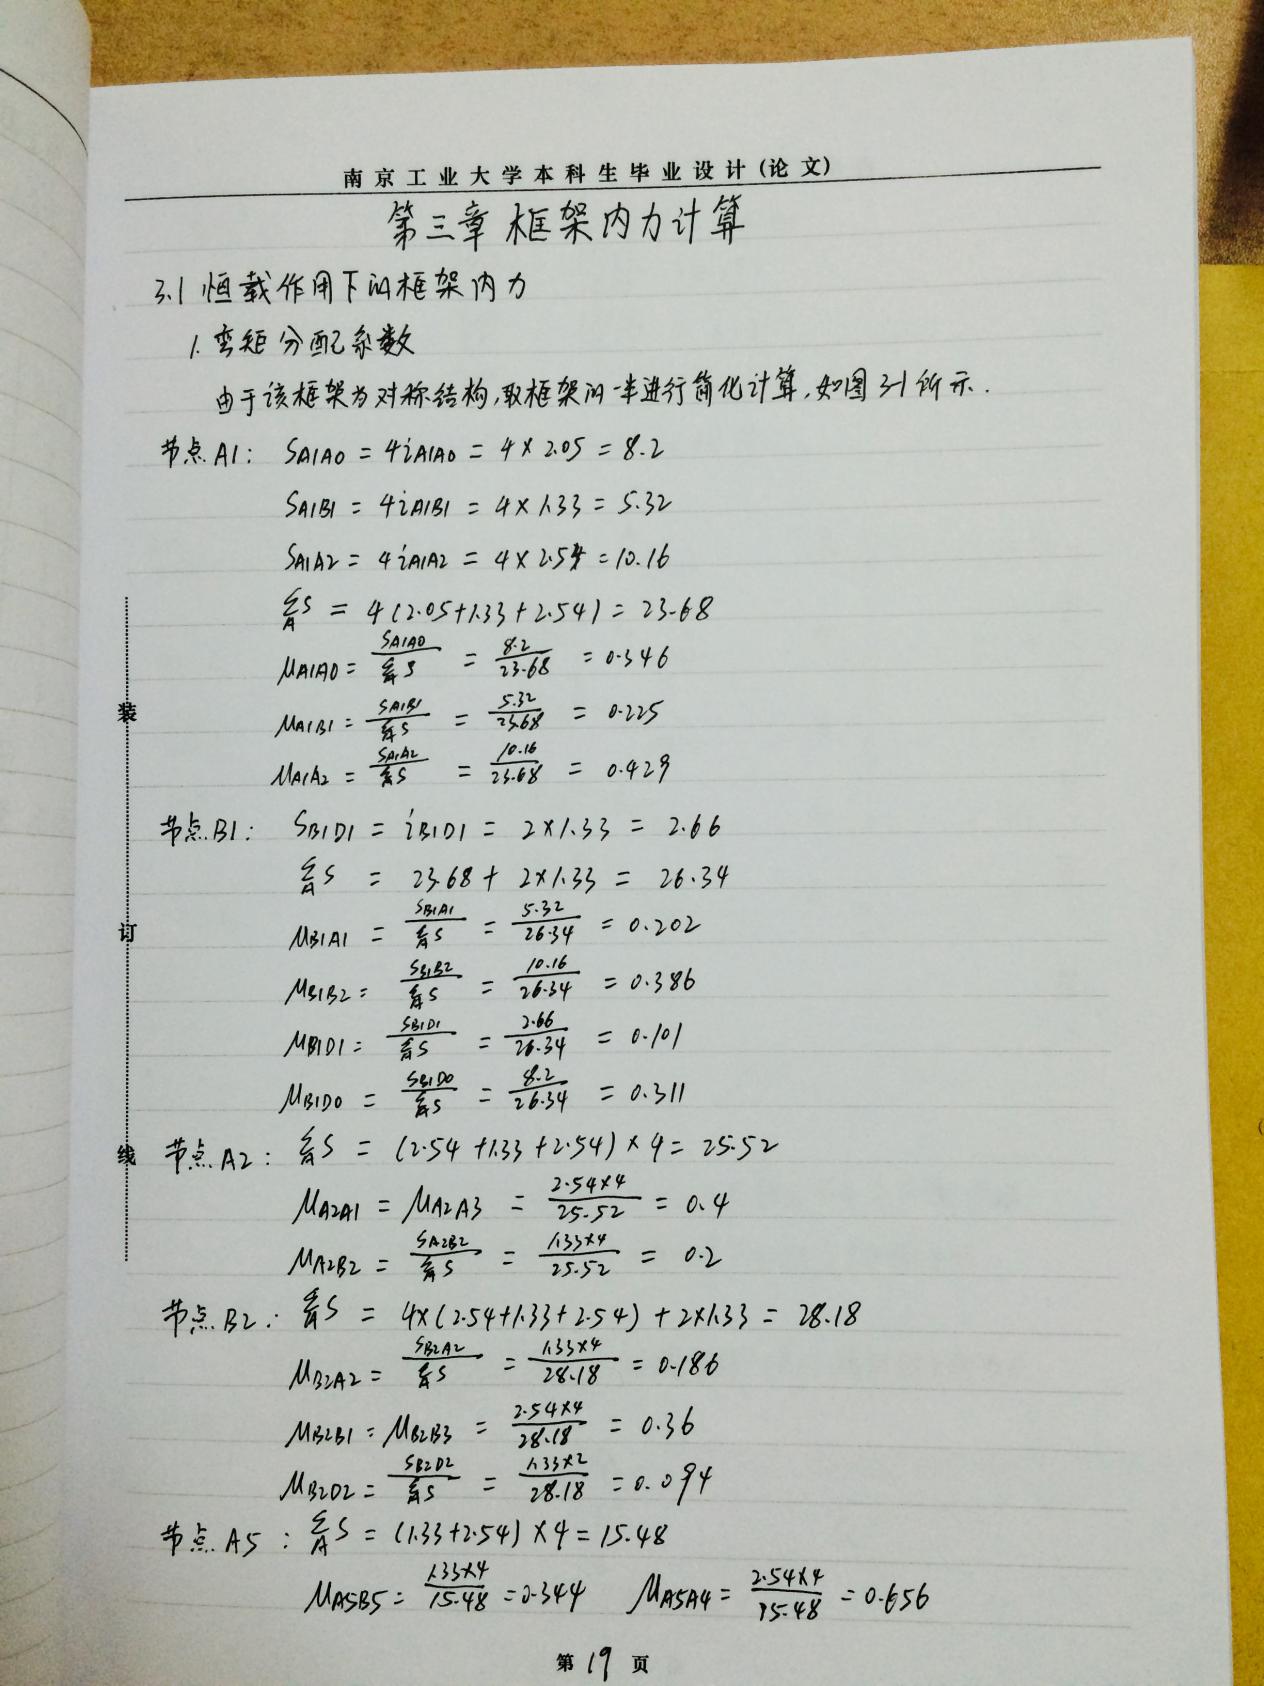 南京工业大学本科生毕业设计(论文)
第三章 框架内力计算
3.1 恒载作用下的框架内力
1. 弯矩分配系数
由于该框架为对称结构,取框架的一半进行简化计算,如图3-1所示.
节点A1: SA1A0 = 4iA1A0 = 4×2.05 = 8.2
SA1B1 = 4iA1B1 = 4×1.33 = 5.32
SA1A2 = 4iA1A2 = 4×2.54 = 10.16
∑A S = 4(2.05+1.33+2.54) = 23.68
μA1A0 = SA1A0/∑A S = 8.2/23.68 = 0.346
μA1B1 = SA1B1/∑A S = 5.32/23.68 = 0.225
μA1A2 = SA1A2/∑A S = 10.16/23.68 = 0.429
装
节点B1: SB1D1 = iB1D1 = 2×1.33 = 2.66
∑A S = 23.68 + 2×1.33 = 26.34
μB1A1 = SB1A1/∑A S = 5.32/26.34 = 0.202
订
μB1B2 = SB1B2/∑A S = 10.16/26.34 = 0.386
μB1D1 = SB1D1/∑A S = 2.66/26.34 = 0.101
μB1D0 = SB1D0/∑A S = 8.2/26.34 = 0.311
线
节点A2: ∑A S = (2.54+1.33+2.54)×4 = 25.52
μA2A1 = μA2A3 = 2.54×4/25.52 = 0.4
μA2B2 = SA2B2/∑A S = 1.33×4/25.52 = 0.2
节点B2: ∑A S = 4×(2.54+1.33+2.54)+2×1.33 = 28.18
μB2A2 = SB2A2/∑A S = 1.33×4/28.18 = 0.186
μB2B1 = μB2B3 = 2.54×4/28.18 = 0.36
μB2D2 = SB2D2/∑A S = 1.33×2/28.18 = 0.094
节点A5: ∑A S = (1.33+2.54)×4 = 15.48
μA5B5 = 1.33×4/15.48 = 0.344 μA5A4 = 2.54×4/15.48 = 0.656
第 19 页